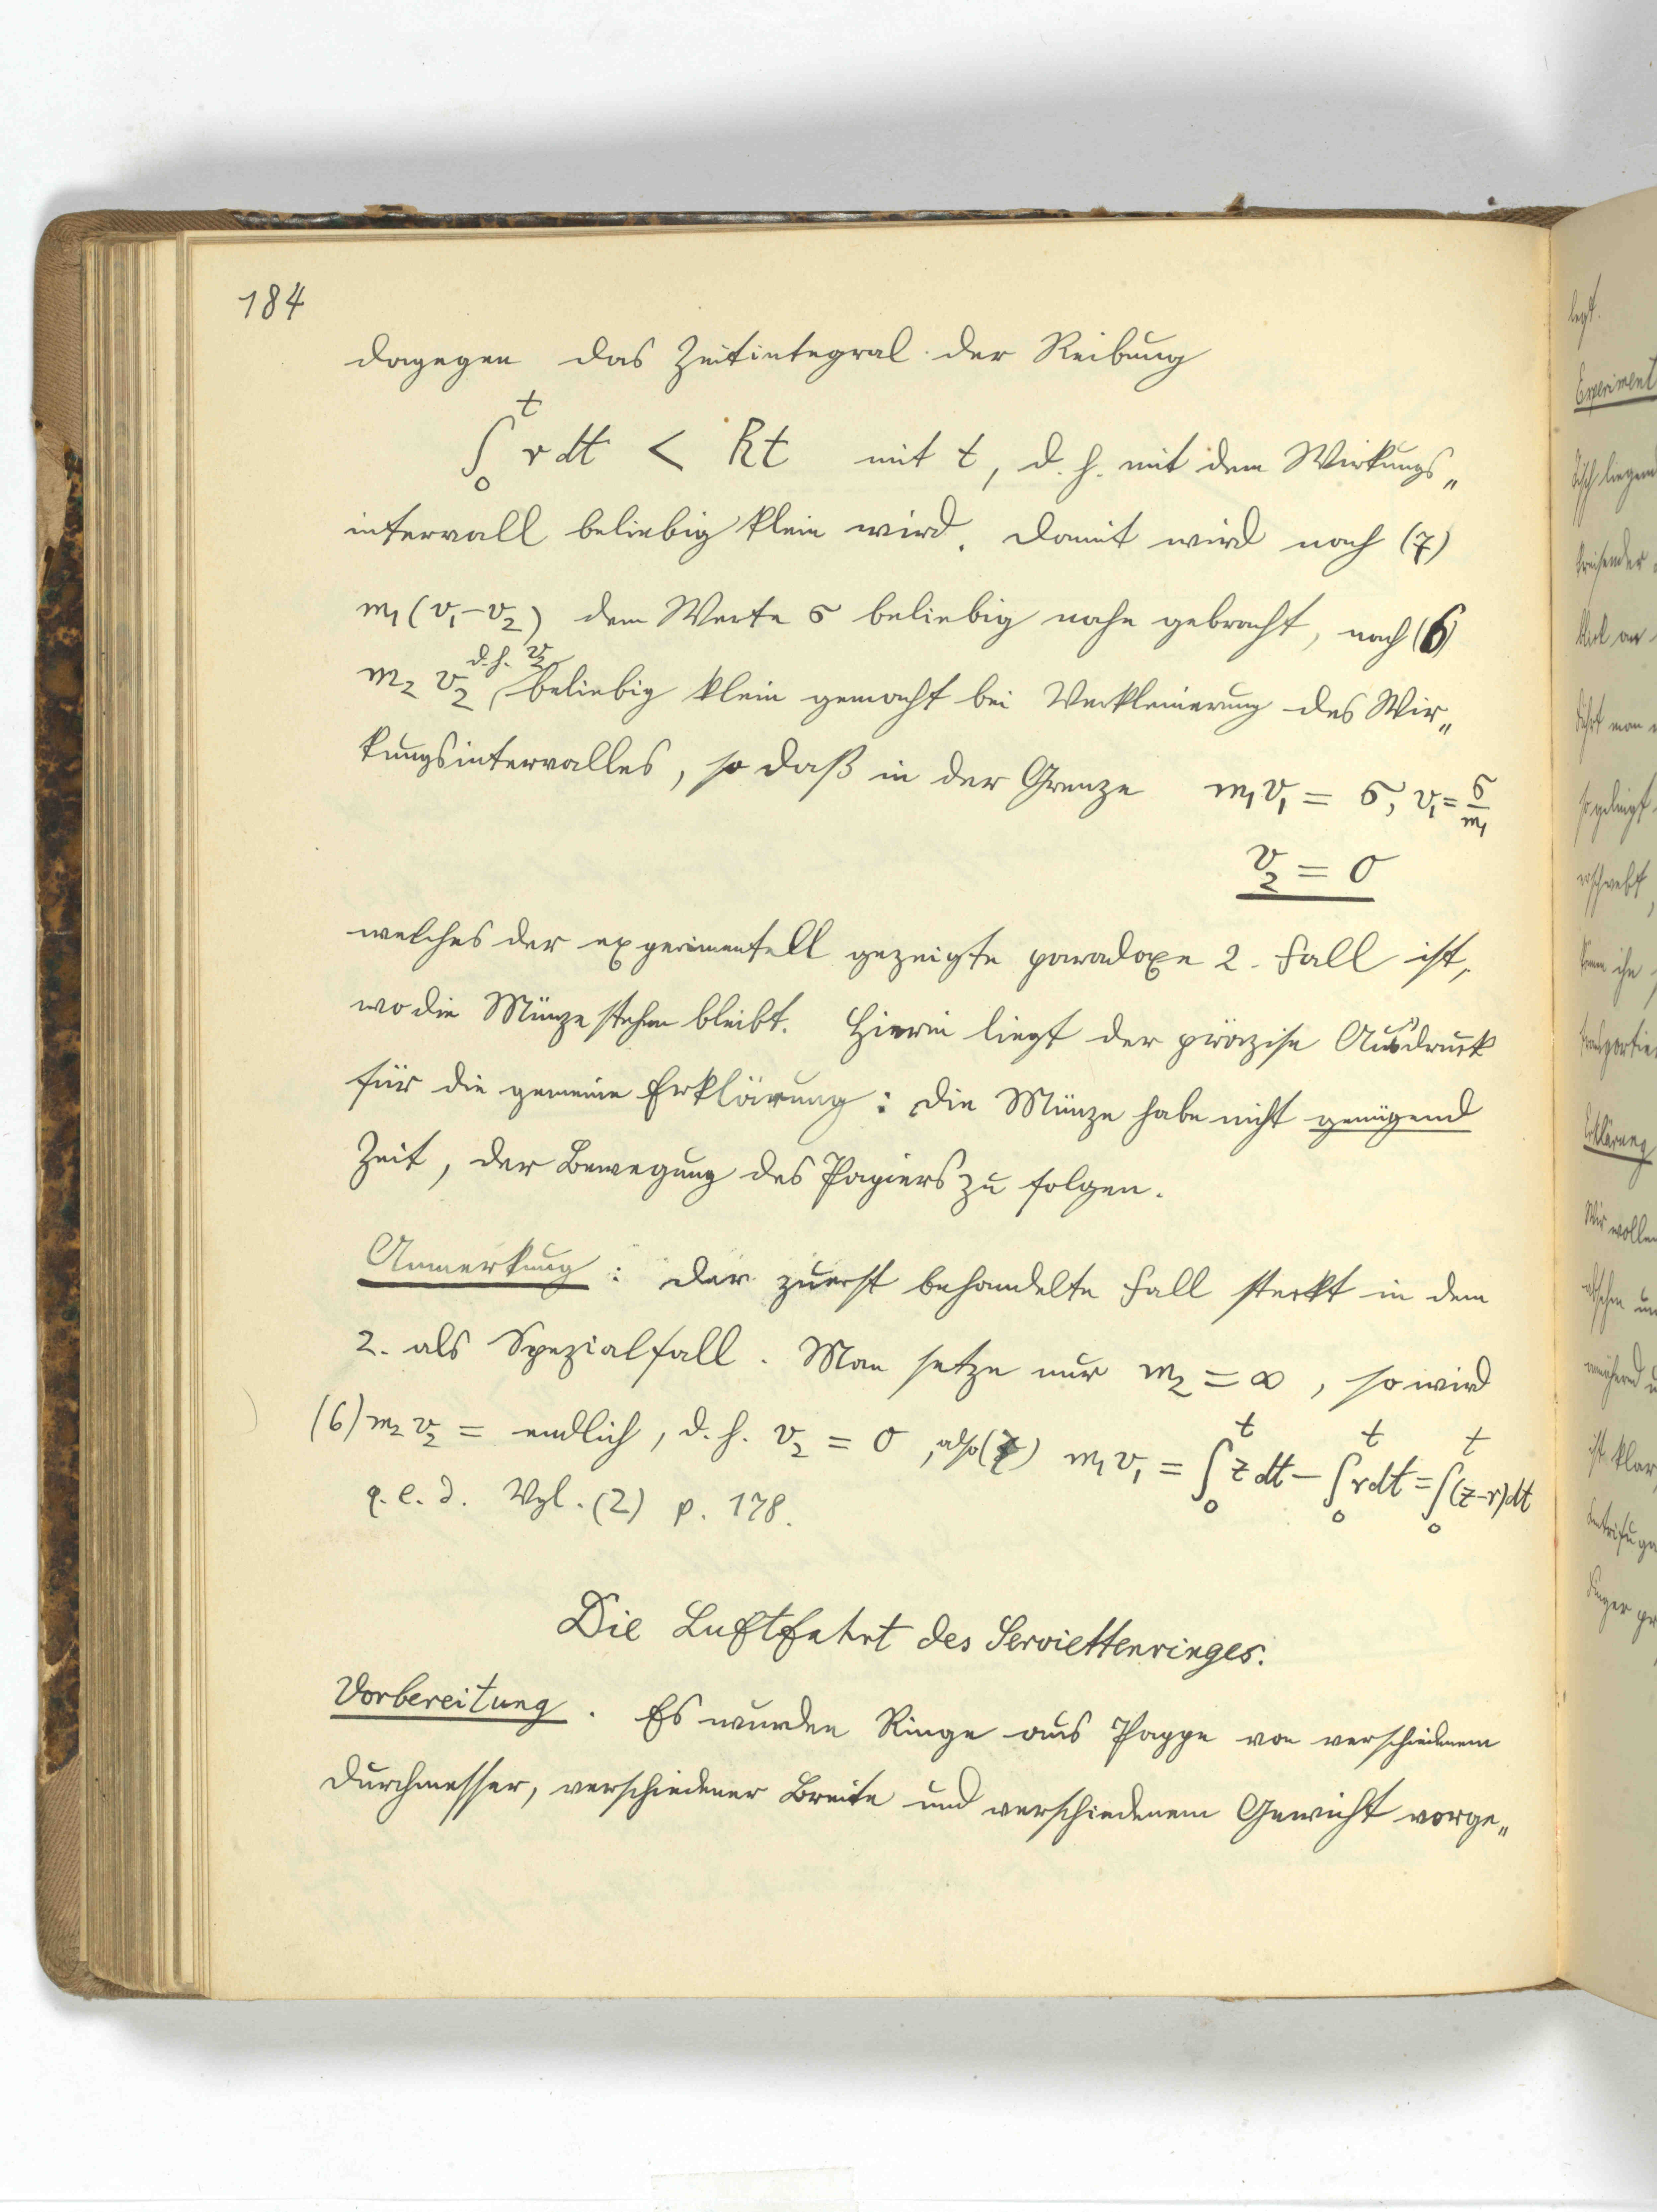 184
dagegen das Zeitintegral der Reibung
∫₀ᵗ r dt < Rt mit t, d. h. mit dem Wirkungs„
intervall beliebig klein wird. Damit wird nach (7)
m₁(v₁−v₂) dem Werte σ beliebig nahe gebracht, nach (6)
d. h. v₂
m₂ v₂ beliebig klein gemacht bei Verkleinerung des Wir„
kungsintervalles, so daß in der Grenze m₁v₁ = σ, v₁ = σ/m₁
v₂ = 0
welches der experimentell gezeigte paradoxe 2. Fall ist,
wo die Münze stehen bleibt. Hierin liegt der präzise Ausdruck
für die gemeine Erklärung: die Münze habe nicht genügend
Zeit, der Bewegung des Papiers zu folgen.
Anmerkung: Der zuerst behandelte Fall steckt in dem
2. als Spezialfall. Man setze nur m₂ = ∞, so wird
(6) m₂v₂ = endlich, d. h. v₂ = 0, also (7) m₁v₁ = ∫₀ᵗ z dt − ∫₀ᵗ r dt = ∫₀ᵗ (z−r) dt
q. e. d. Vgl. (2) p. 178.
Die Luftfahrt des Serviettenringes.
Vorbereitung. Es wurden Ringe aus Pappe von verschiedenem
Durchmesser, verschiedener Breite und verschiedenem Gewicht vorge„
legt.
Experiment
Tisch liegen
blick an
führt man
so gelingt
ihn
Erklärung
Wir wollen
ist klar